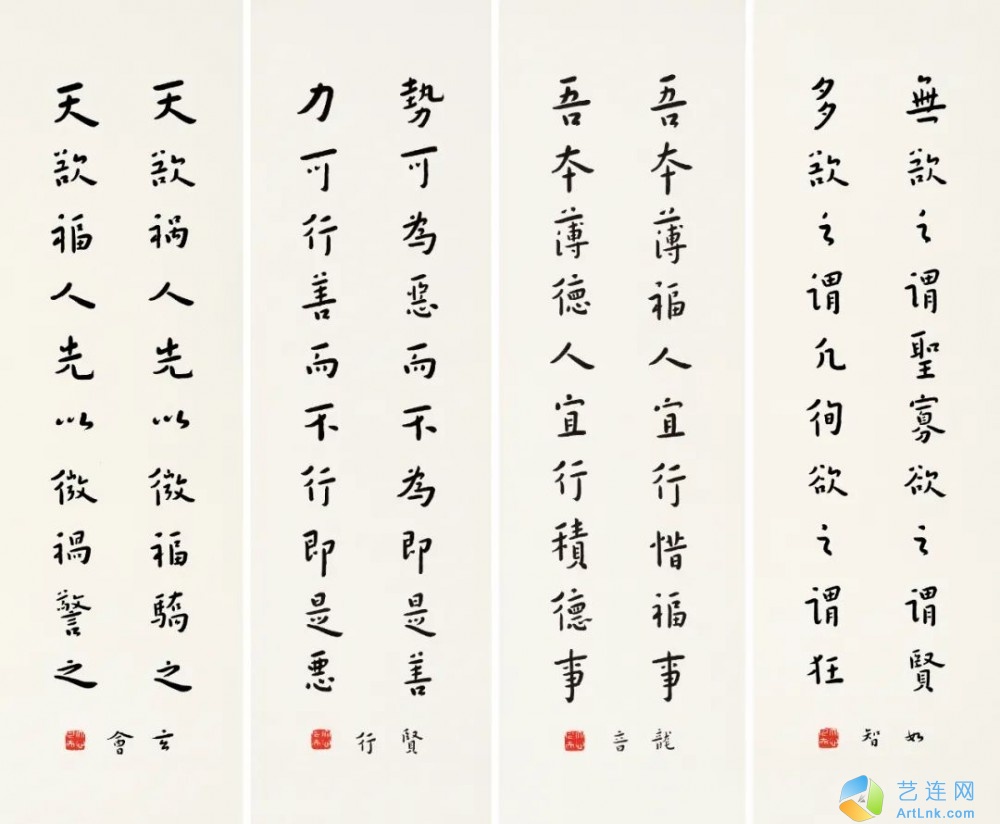 無欲之谓聖寡欲之谓賢
多欲之谓凡徇欲之谓狂
如智
吾本薄福人宜行惜福事
吾本薄德人宜行積德事
龍音
勢可為惡而不為即是善
力可行善而不行即是悪
賢行
天欲禍人先以微福驕之
天欲福人先以微禍警之
玄會
艺连网
ArtLnk.com